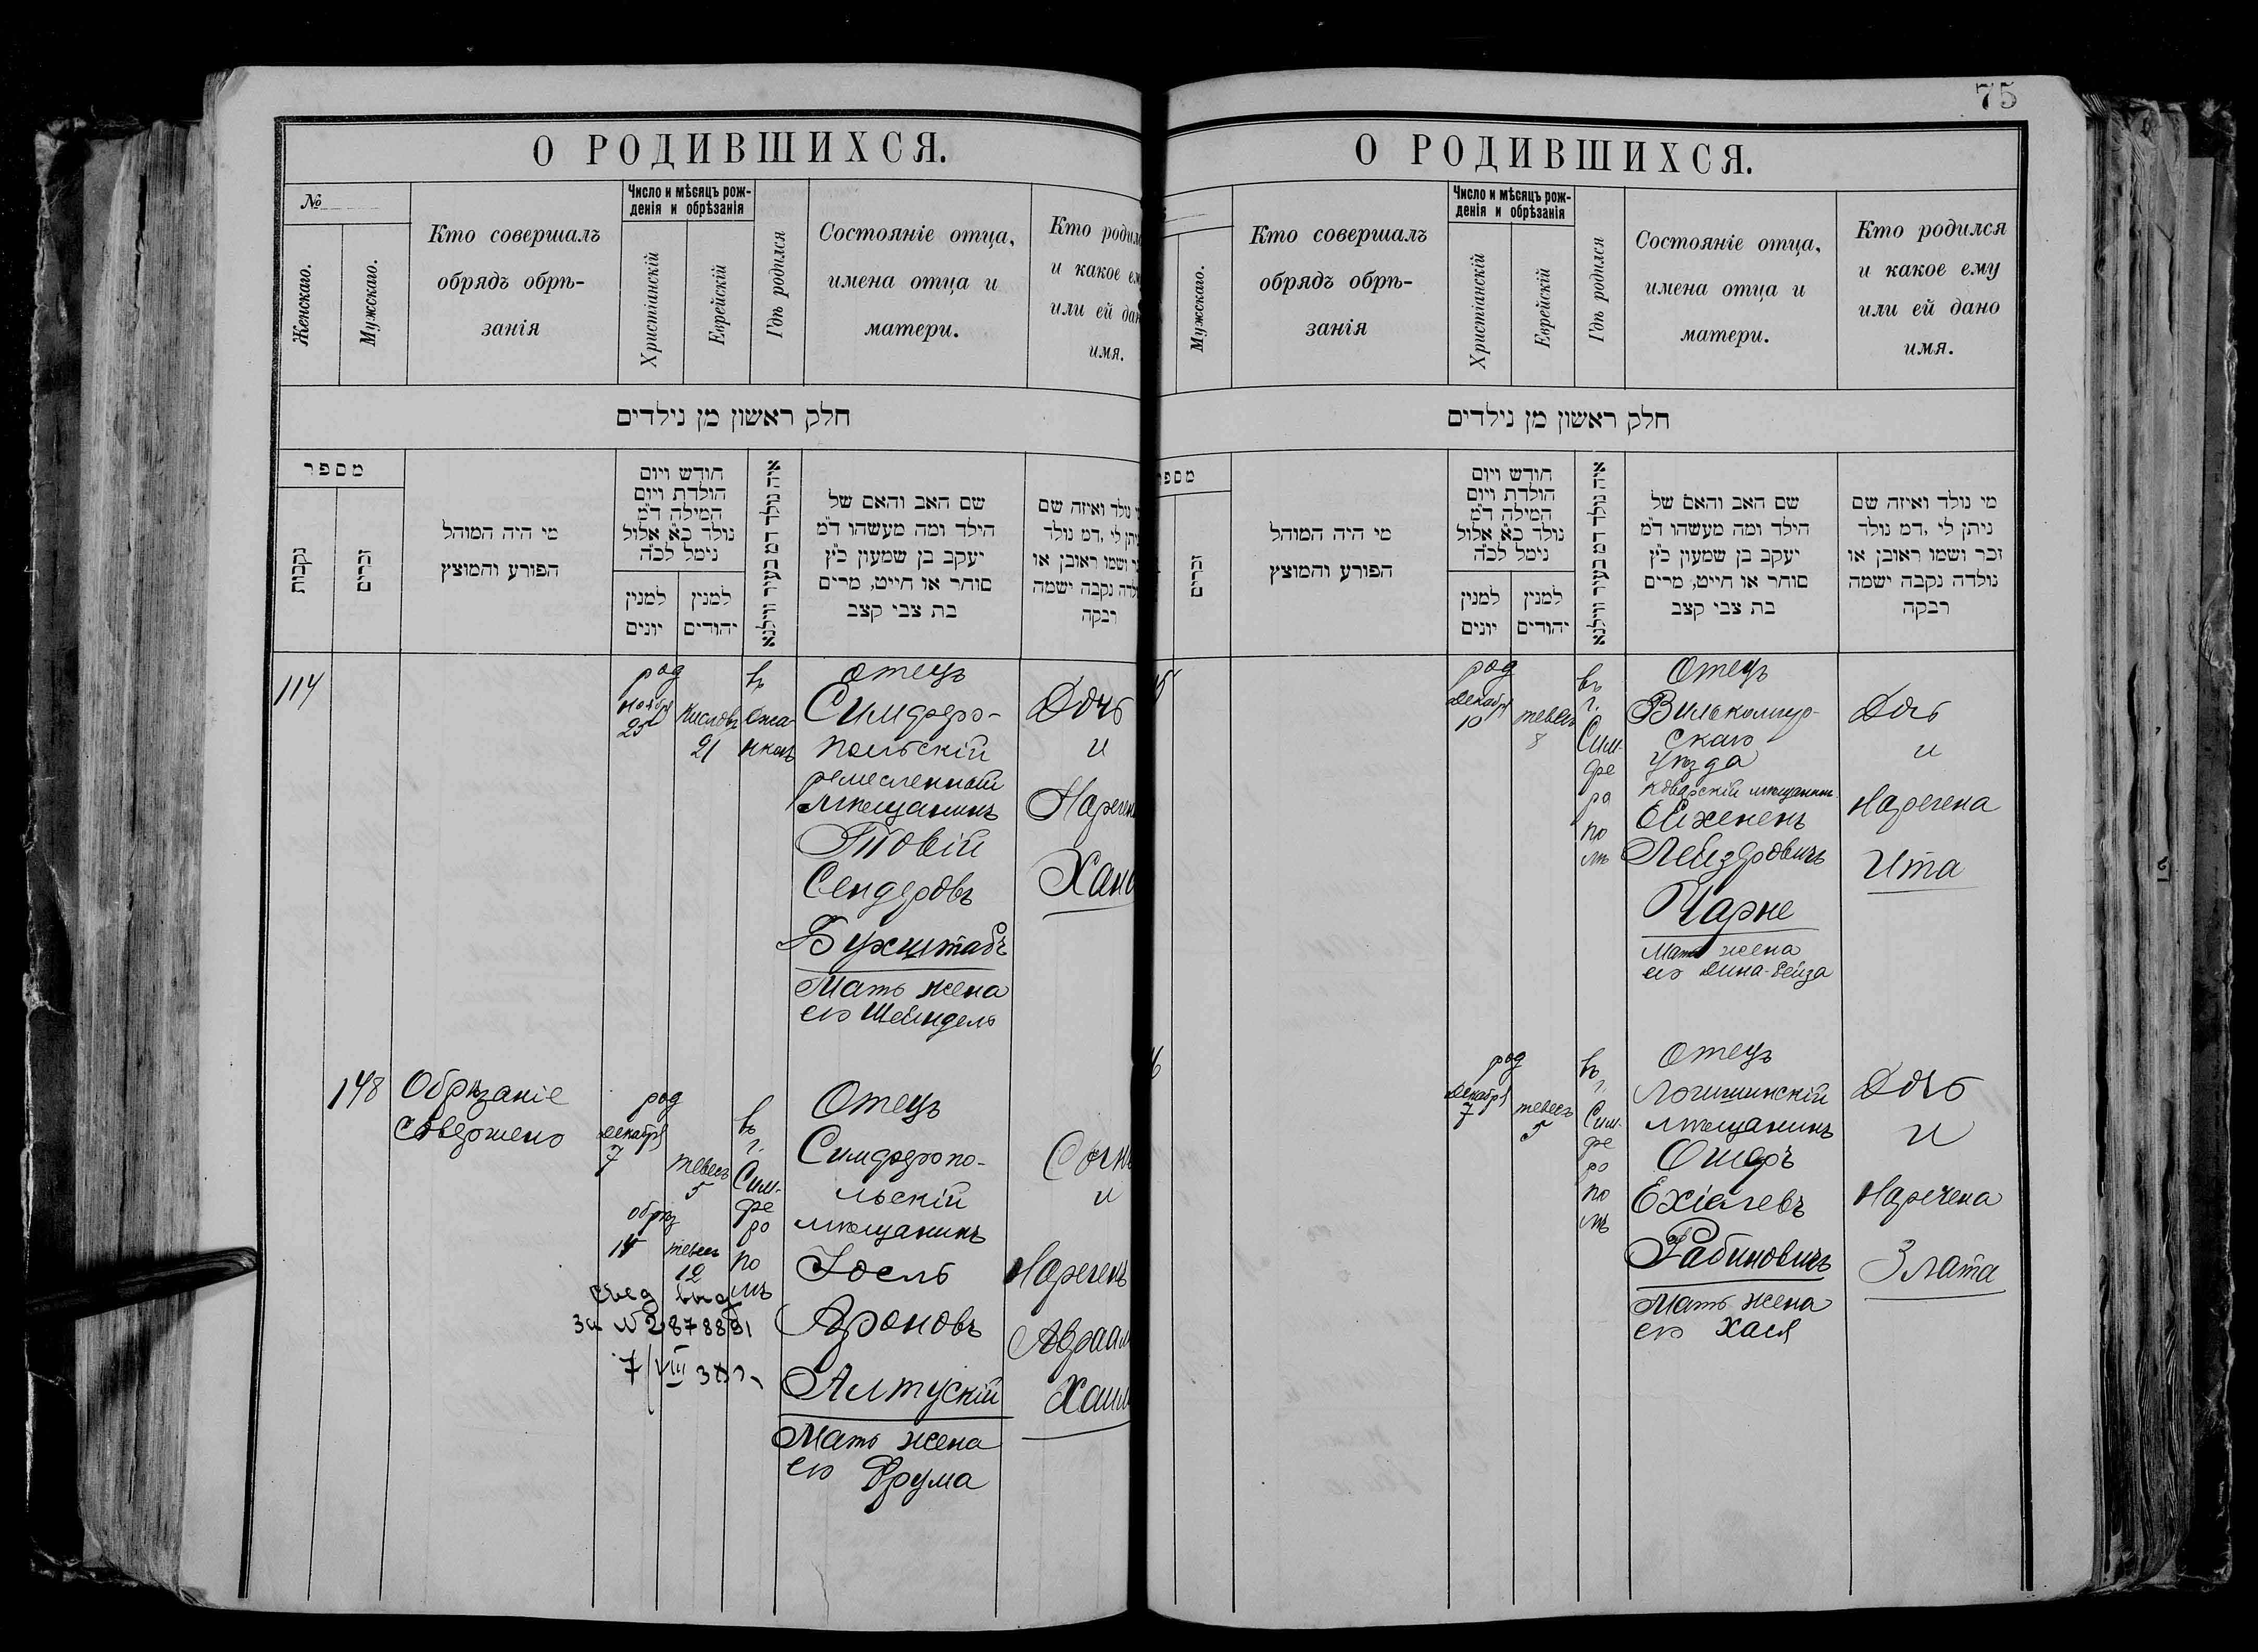 О РОДИВШИХСЯ.
№
Женскаго.
Мужскаго.
Кто совершалъ
обрядъ обрѣ-
занія
Число и мѣсяцъ рож-
денія и обрѣзанія
Христіанскій
Еврейскій
Гдѣ родился
Состояніе отца,
имена отца и
матери.
Кто родил
и какое ем
или ей дан
имя.
חלק ראשון מן נילדים
מספר
נקבות
זכרים
מי היה המוהל
הפורע והמוצץ
חודש ויום
הולדת ויום
המילה ד"מ
נולד כ"א אלול
נימל לכ"ה
למנין
יונים
למנין
יהודים
איה נולד דמ בעיר ווילנא
שם האב והאם של
הילד ומה מעשהו ד"מ
יעקב בן שמעון כ"ץ
סוחר או חייט, מרים
בת צבי קצב
נולד ואיזה שם
יתן לי ,דמ נולד
ושמו ראובן או
לדה נקבה ישמה
רבקה
114
род
Ноября
25
Кислевъ
21
въ
Джа-
нкоѣ
Отецъ
Симферо-
польскій
ремесленный
мѣщанинъ
Товій
Сендеровъ
Бухштабъ
Мать жена
его Шейндель
Дочь
и
Наречена
Хана
148
Обрѣзаніе
совершено
род
Декабря
7
тевесъ
5
обрѣз
14
тевесъ
12
свед выд
за № 2878891
7/VIII 38 г.
въ
г.
Сим-
фе
ро
по
лѣ
Отецъ
Симферопо-
льскій
мѣщанинъ
Іосль
Ароновъ
Алтускій
Мать жена
его Фрума
Сынъ
и
Нареченъ
Авраам
Хаим
75
О РОДИВШИХСЯ.
Мужскаго.
Кто совершалъ
обрядъ обрѣ-
занія
Число и мѣсяцъ рож-
денія и обрѣзанія
Христіанскій
Еврейскій
Гдѣ родился
Состояніе отца,
имена отца и
матери.
Кто родился
и какое ему
или ей дано
имя.
חלק ראשון מן נילדים
מספר
זכרים
מי היה המוהל
הפורע והמוצץ
חודש ויום
הולדת ויום
המילה ד"מ
נולד כ"א אלול
נימל לכ"ה
למנין
יונים
למנין
יהודים
איה נולד דמ בעיר ווילנא
שם האב והאם של
הילד ומה מעשהו ד"מ
יעקב בן שמעון כ"ץ
סוחר או חייט, מרים
בת צבי קצב
מי נולד ואיזה שם
ניתן לי ,דמ נולד
זכר ושמו ראובן או
נולדה נקבה ישמה
רבקה
5
род
Декабря
10
тевесъ
8
въ
г.
Сим-
фе
ро
по
лѣ
Отецъ
Вилькомир-
скаго
уѣзда
Коварскій мѣщанинъ
Ейхенень
Лейзеровичъ
Чарне
Мать жена
его Дина-Рейза
Дочь
и
Наречена
Ита
6
род
Декабря
7
тевесъ
5
въ
г.
Сим-
фе
ро
по
лѣ
Отецъ
Логишинскій
мѣщанинъ
Ошеръ
Ехіелевъ
Рабиновичъ
Мать жена
его Хася
Дочь
и
Наречена
Злата